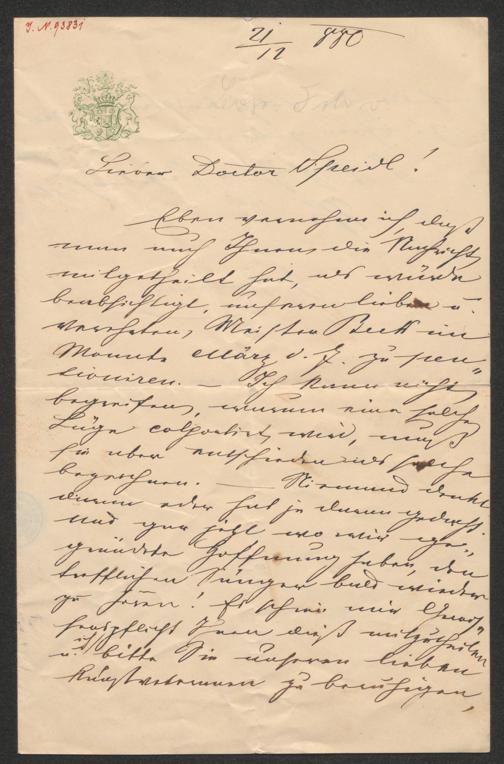 J. N. 93831
21/12 880
Lieber Doctor Speidl!
Eben vernehme ich, daß
man auch Ihnen die Nachricht
mitgetheilt hat, als würde
beabsichtigt, unseren lieben u.
verehrten Meister Beck im
Monate März d. J. zu pen„
sioniren. — Ich kann nicht
begreifen, warum eine solche
Lüge colportirt wird, muß
sie aber entschieden als solche
bezeichnen. — Niemand denkt
daran oder hat je daran gedacht
und gar jetzt wo wir ge„
gründete Hoffnung haben, den
trefflichen Sänger bald wieder
zu hören! Es schien mir Gewis„
senspflicht Ihnen dieß mitzutheilen
u. ich bitte Sie unseren lieben
Kunstveteranen zu beruhigen,